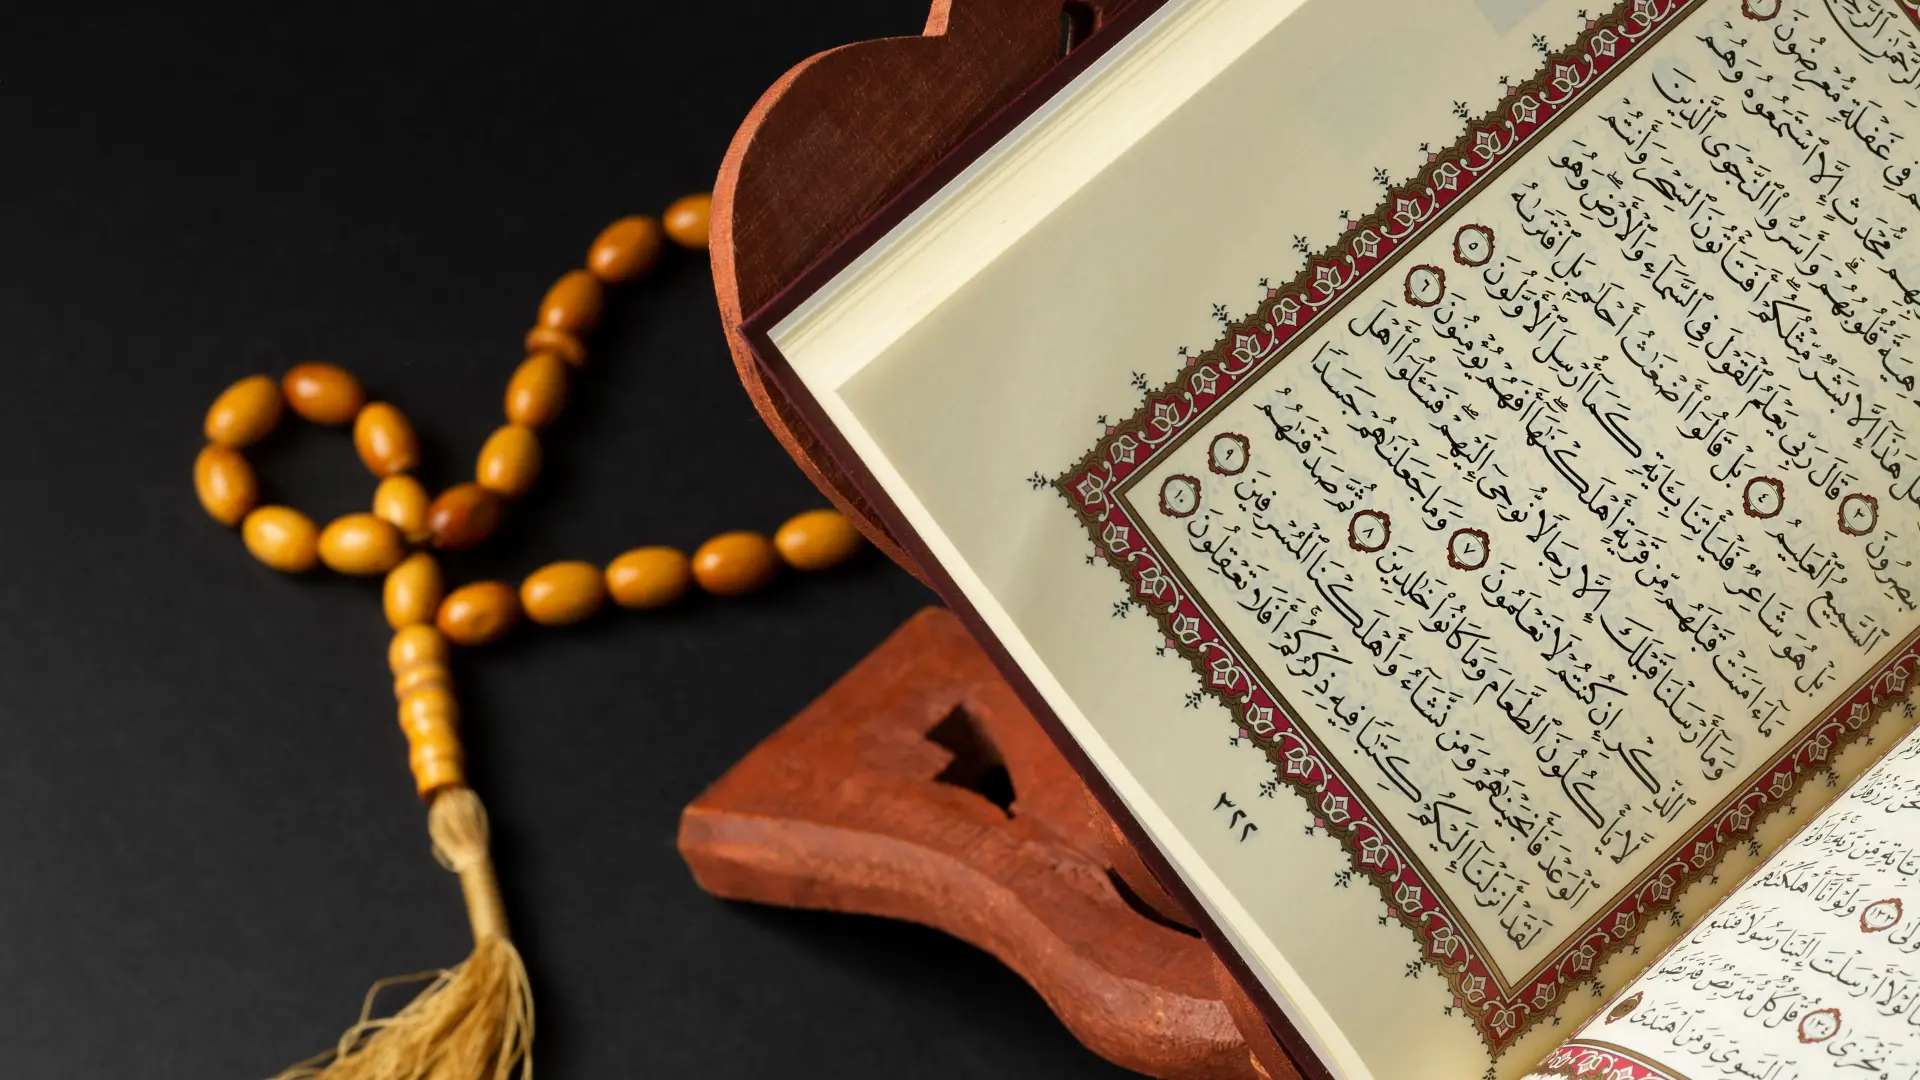 فِى غَفْلَةٍ مُّعْرِضُونَ
مُّحْدَثٍ إِلَّا ٱسْتَمَعُوهُ وَهُمْ
قُلُوبُهُمْ وَأَسَرُّوا۟ ٱلنَّجْوَى ٱلَّذِينَ
هَٰذَآ إِلَّا بَشَرٌ مِّثْلُكُمْ أَفَتَأْتُونَ ٱلسِّحْرَ وَأَنتُمْ
تُبْصِرُونَ ٣ قَالَ رَبِّى يَعْلَمُ ٱلْقَوْلَ فِى ٱلسَّمَآءِ وَٱلْأَرْضِ وَهُوَ
ٱلسَّمِيعُ ٱلْعَلِيمُ ٤ بَلْ قَالُوٓا۟ أَضْغَٰثُ أَحْلَٰمٍ بَلِ ٱفْتَرَىٰهُ
بَلْ هُوَ شَاعِرٌ فَلْيَأْتِنَا بِـَٔايَةٍ كَمَآ أُرْسِلَ ٱلْأَوَّلُونَ ٥
مَآ ءَامَنَتْ قَبْلَهُم مِّن قَرْيَةٍ أَهْلَكْنَٰهَآ أَفَهُمْ يُؤْمِنُونَ ٦
وَمَآ أَرْسَلْنَا قَبْلَكَ إِلَّا رِجَالًا نُّوحِىٓ إِلَيْهِمْ فَسْـَٔلُوٓا۟ أَهْلَ
ٱلذِّكْرِ إِن كُنتُمْ لَا تَعْلَمُونَ ٧ وَمَا جَعَلْنَٰهُمْ جَسَدًا
لَّا يَأْكُلُونَ ٱلطَّعَامَ وَمَا كَانُوا۟ خَٰلِدِينَ ٨ ثُمَّ صَدَقْنَٰهُمُ
ٱلْوَعْدَ فَأَنجَيْنَٰهُمْ وَمَن نَّشَآءُ وَأَهْلَكْنَا ٱلْمُسْرِفِينَ ٩
لَقَدْ أَنزَلْنَآ إِلَيْكُمْ كِتَٰبًا فِيهِ ذِكْرُكُمْ أَفَلَا تَعْقِلُونَ ١٠
٣٢٢
بِـَٔايَةٍ مِّن رَّبِّهِۦٓ أَوَلَمْ
١٣٣ وَلَوْ أَنَّآ أَهْلَكْنَٰهُم
لَوْلَآ أَرْسَلْتَ إِلَيْنَا رَسُولًا فَنَتَّبِعَ
وَنَخْزَىٰ ١٣٤ قُلْ كُلٌّ مُّتَرَبِّصٌ فَتَرَبَّصُوا۟
ٱلسَّوِىِّ وَمَنِ ٱهْتَدَىٰ